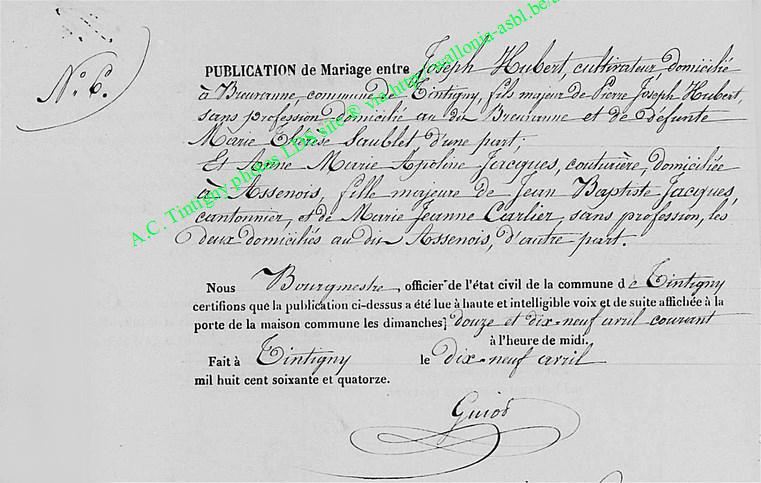 N.° 6.
PUBLICATION de Mariage entre Joseph Hubert, cultivateur, domicilié
à Breuvanne, commune de Tintigny, fils majeur de Pierre Joseph Hubert,
sans profession domicilié au dit Breuvanne et de défunte
Marie Thérèse Saublet, d'une part;
Et Anne Marie Apoline Jacques, couturière, domiciliée
à Assenois, fille majeure de Jean Baptist Jacques,
cantonnier, et de Marie Jeanne Carlier, sans profession, les
deux domiciliés au dit Assenois, d'autre part.
Nous Bourgmestre, officier de l'état civil de la commune de Tintigny
certifions que la publication ci-dessus a été lue à haute et intelligible voix et de suite affichée à la
porte de la maison commune les dimanches douze et dix-neuf avril courant
à l'heure de midi.
Fait à Tintigny le dix-neuf avril
mil huit cent soixante et quatorze.
Guiot
A.C. Tintigny photos LDS site® via http://wallonia-asbl.be/